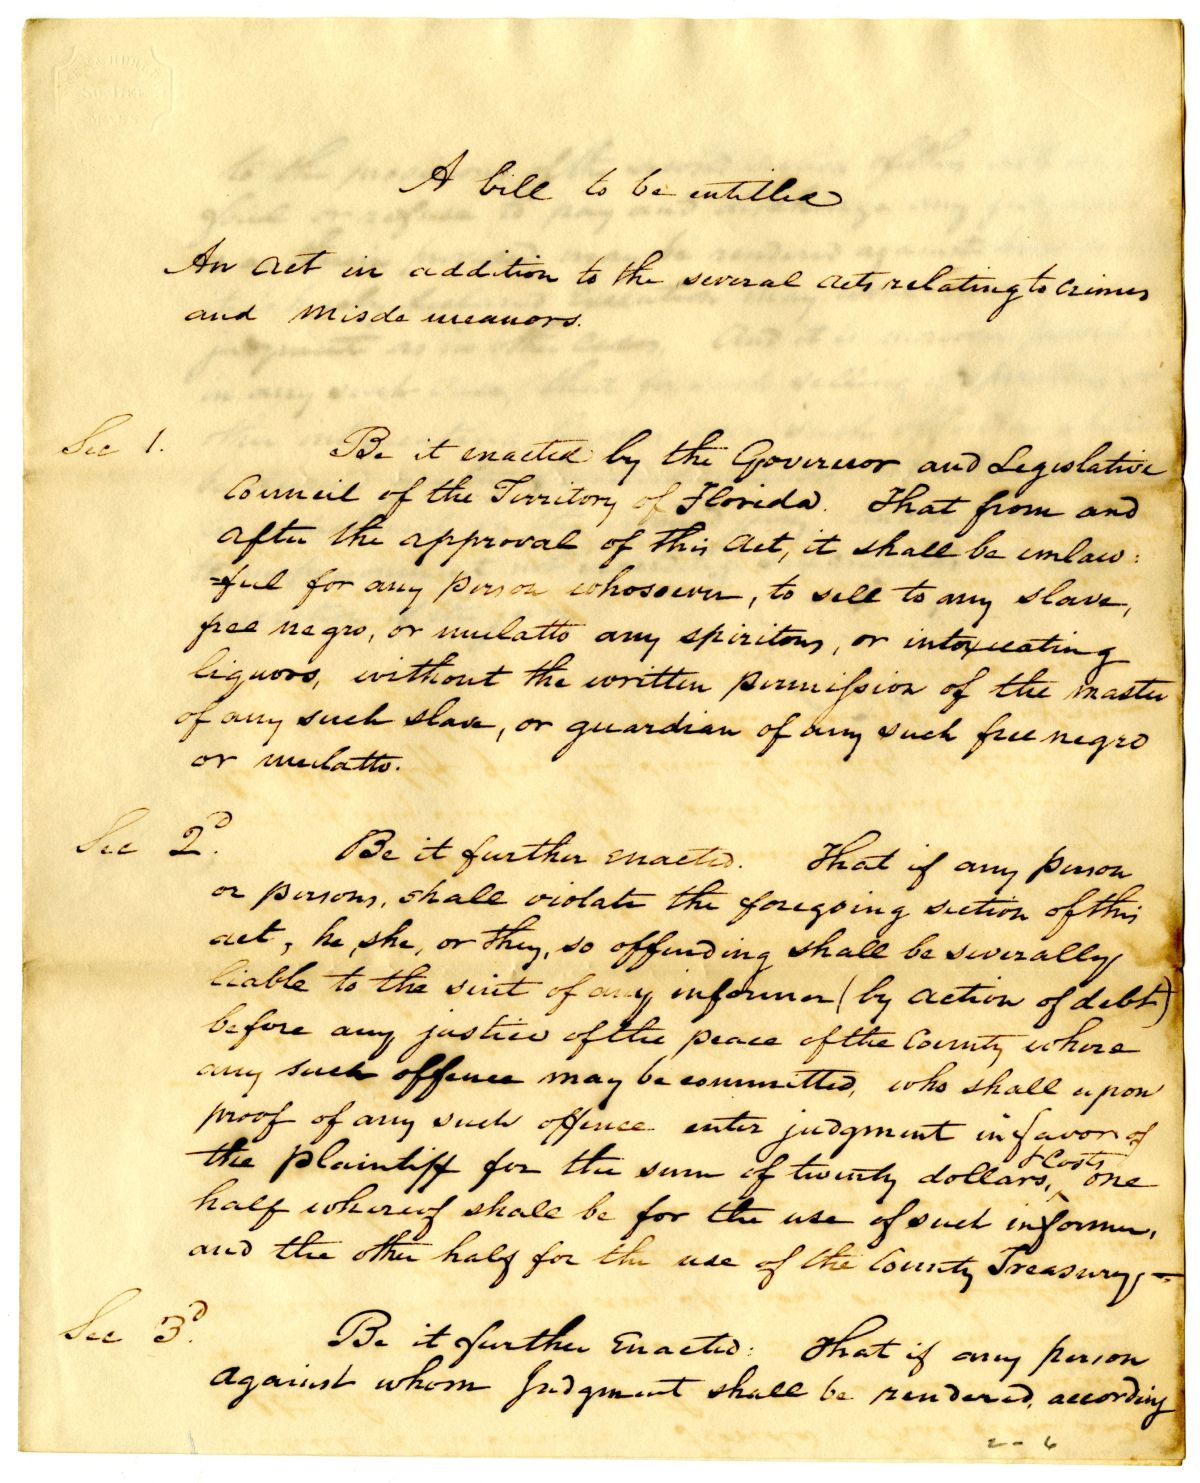 A bill to be entitled
An Act in addition to the several acts relating to Crimes
and Misdemeanors.
Sec 1. Be it enacted by the Governor and Legislative
Council of the Territory of Florida. That from and
after the approval of this Act, it shall be unlaw:
=ful for any person whosoever, to sell to any slave,
free negro, or mulatto any spiritous, or intoxicating
liquors, without the written permission of the master
of any such slave, or guardian of any such free negro
or mulatto.
Sec 2d. Be it further enacted. That if any person
or persons, shall violate the foregoing section of this
act, he, she, or they, so offending shall be severally
liable to the suit of any informer (by action of debt)
before any justice of the peace of the County where
any such offence may be committed, who shall upon
proof of any such offence enter judgment in favor of
the plaintiff for the sum of twenty dollars, & Costs one
half whereof shall be for the use of such informer,
and the other half for the use of the County Treasury,
Sec 3d. Be it further Enacted: That if any person
against whom Judgment shall be rendered, according
2-6